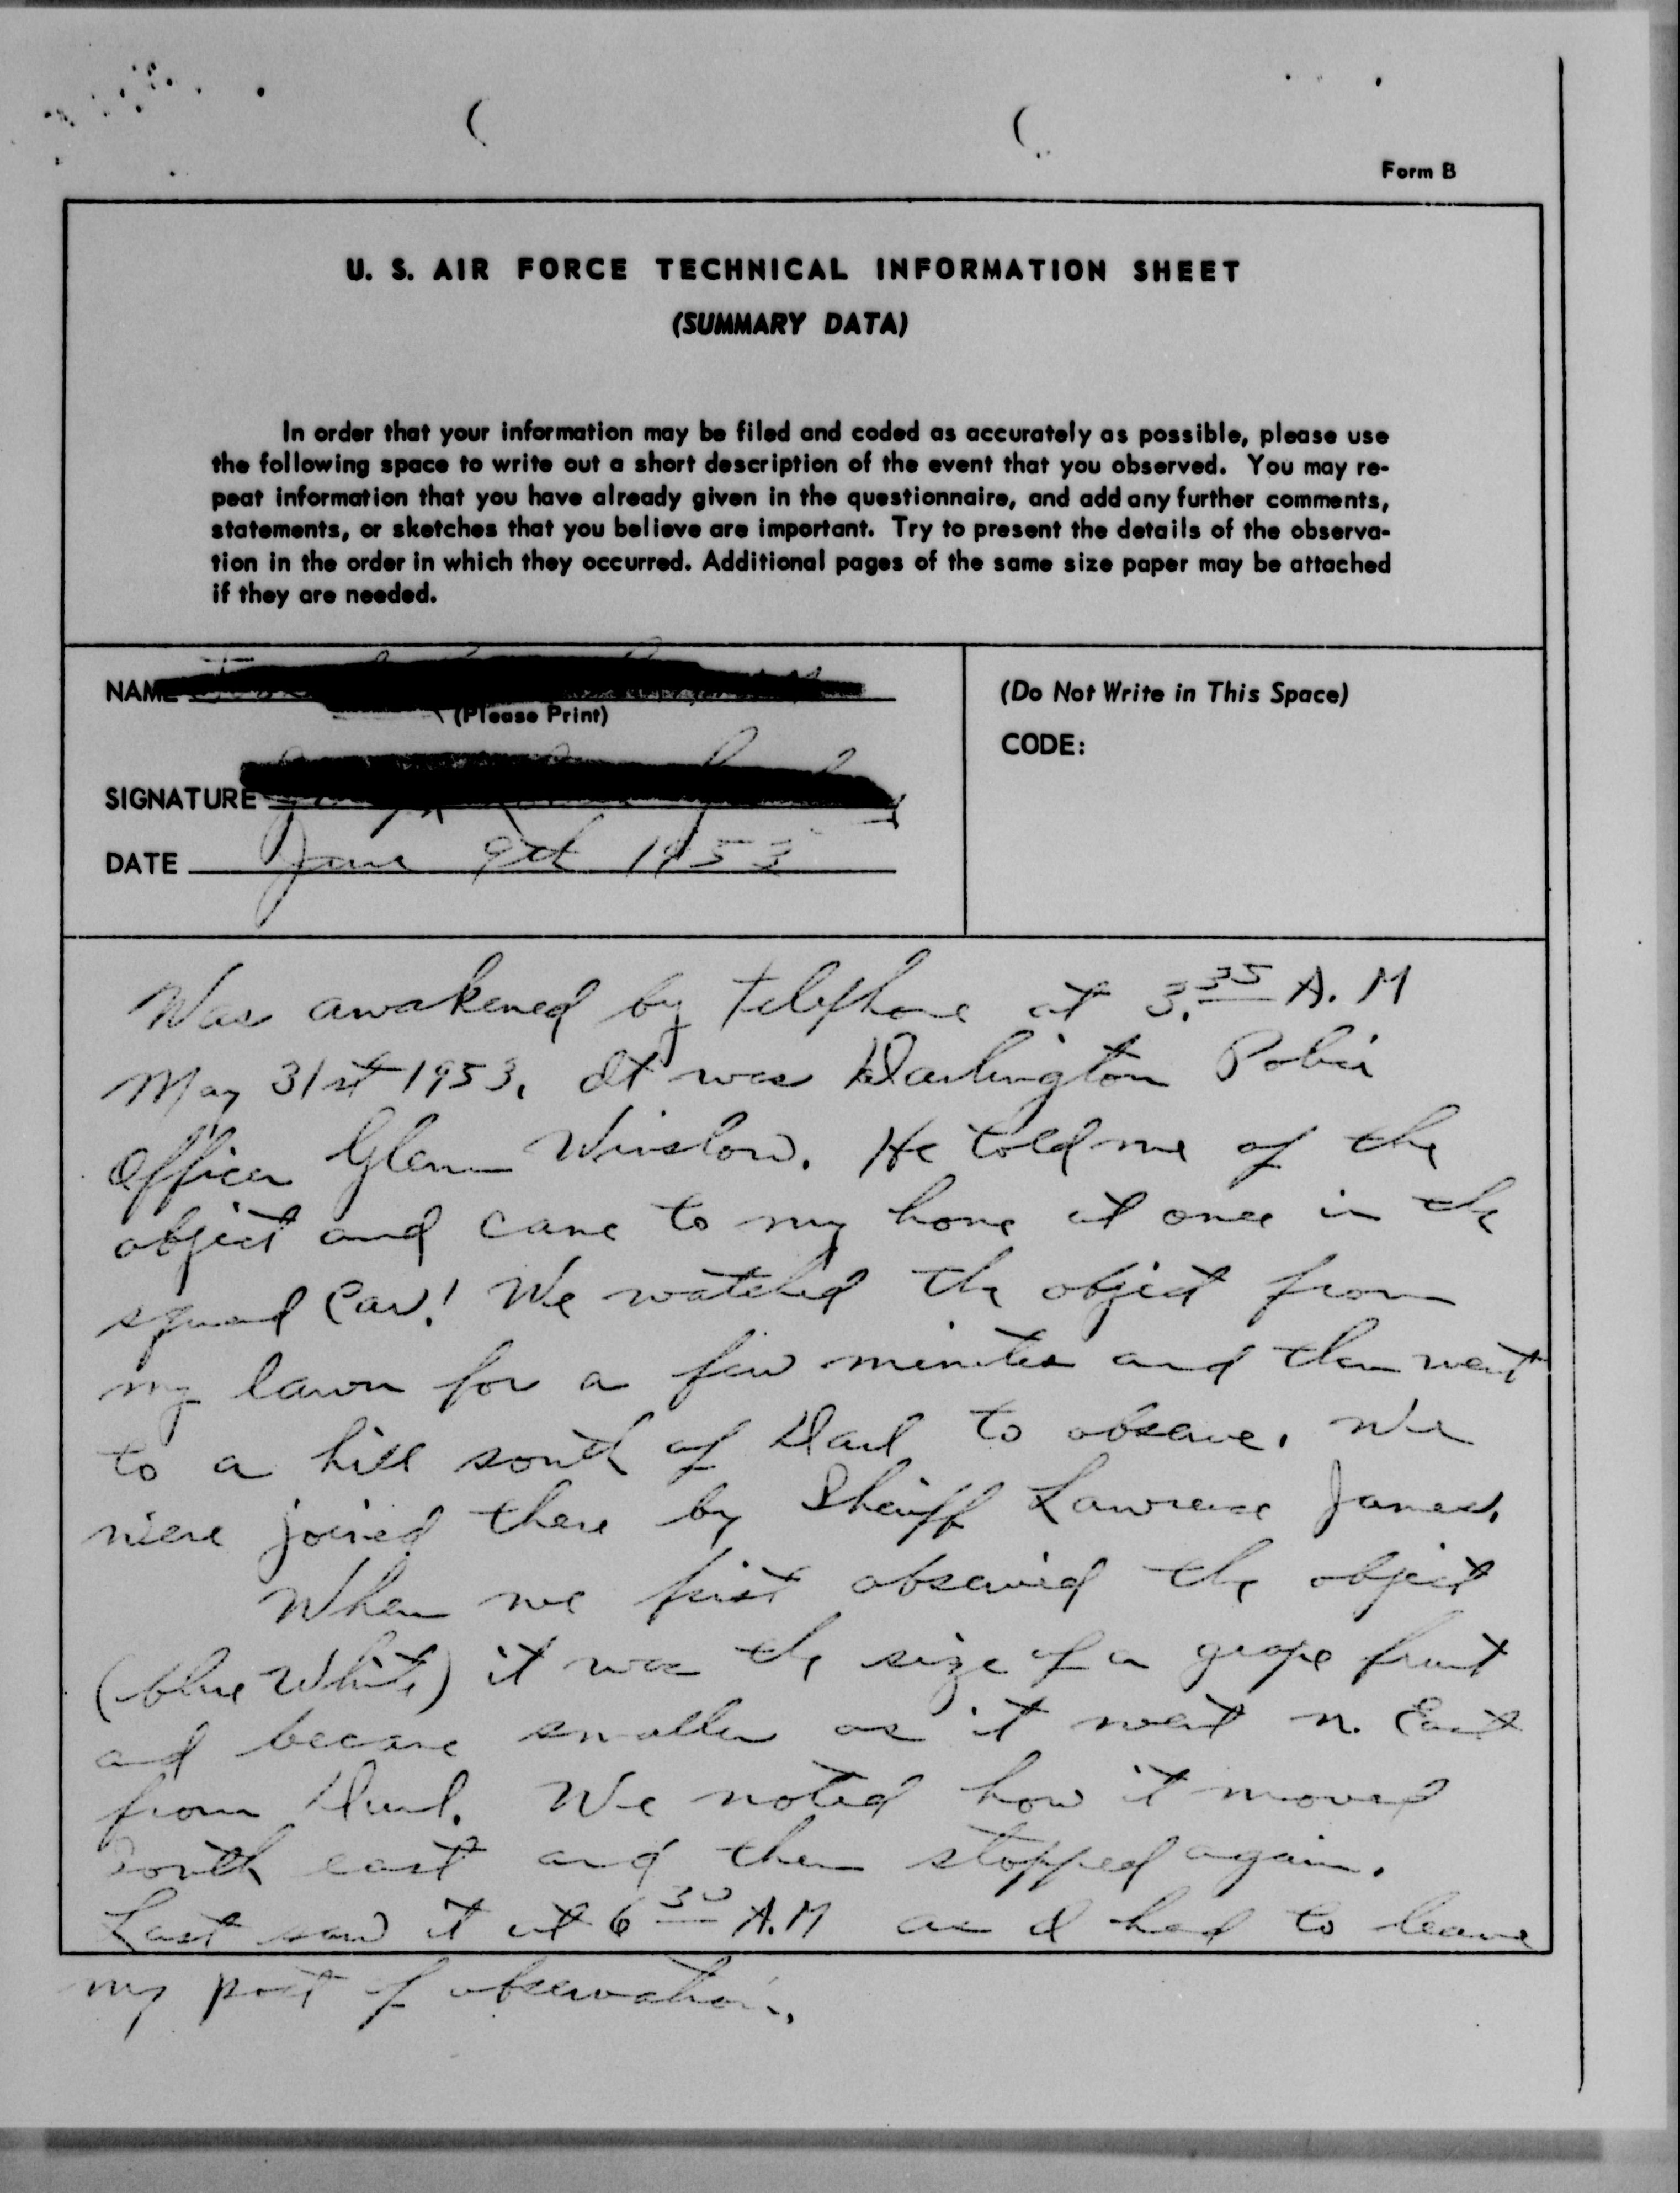 Form B
U. S. AIR FORCE TECHNICAL INFORMATION SHEET
(SUMMARY DATA)
In order that your information may be filed and coded as accurately as possible, please use
the following space to write out a short description of the event that you observed. You may re-
peat information that you have already given in the questionnaire, and add any further comments,
statements, or sketches that you believe are important. Try to present the details of the observa-
tion in the order in which they occurred. Additional pages of the same size paper may be attached
if they are needed.
NAME
(Please Print)
SIGNATURE
DATE June 9th 1953
(Do Not Write in This Space)
CODE:
Was awakened by telephone at 3.35 A.M
May 31st 1953. It was Darlington Police
Officer Glenn Winslow. He told me of the
object and came to my home at once in the
squad car! We watched the object from
my lawn for a few minutes and then went
to a hill south of Darl to observe. We
were joined there by Sheriff Lawrence James.
When we first observed the object
(blue white) it was the size of a grape fruit
and became smaller as it went n. East
from Darl. We noted how it moved
South east and then stopped again.
Last saw it at 6 30 A.M as I had to leave
my post of observation.